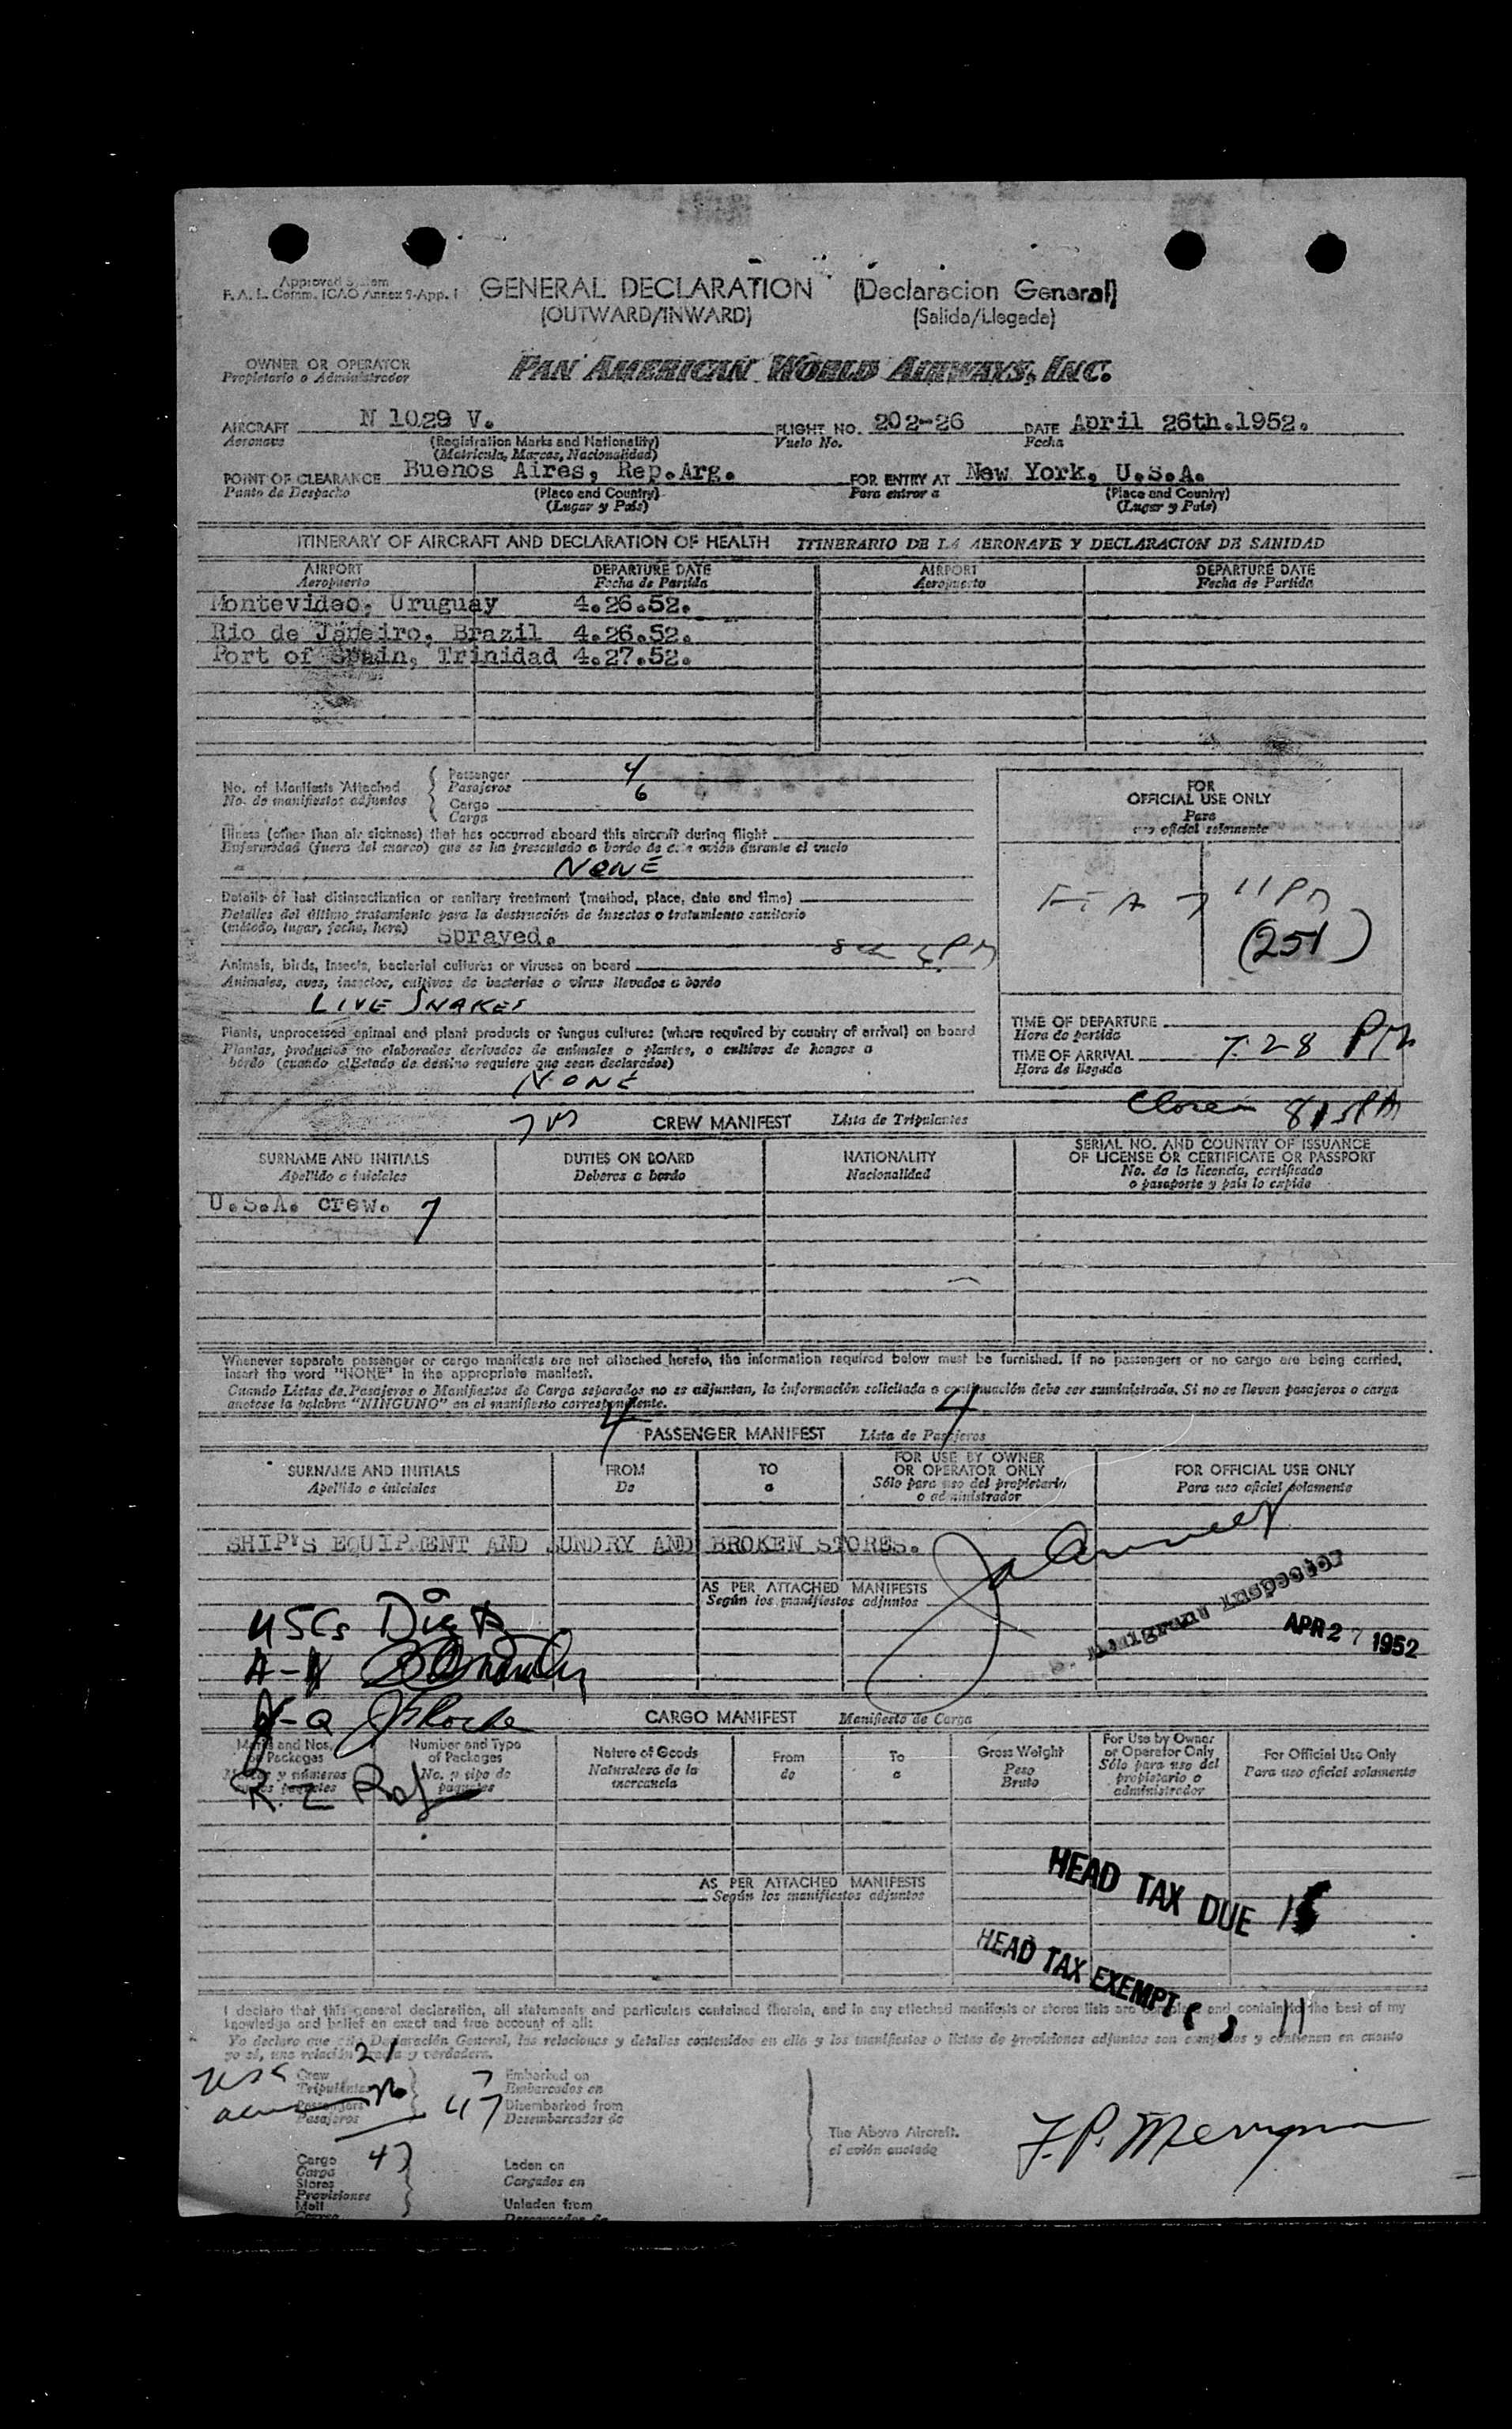 Approved System
F. A. L. Comm. ICAO Annex 9-App. 1
GENERAL DECLARATION (Declaracion General)
(OUTWARD/INWARD) (Salida/Llegada)
OWNER OR OPERATOR
Propietario o Administrador
PAN AMERICAN WORLD AIRWAYS, INC.
AIRCRAFT N 1029 V. FLIGHT NO. 202-26 DATE April 26th.1952.
Aeronave (Registration Marks and Nationality) Vuelo No. Fecha
(Matricula, Marcas, Nacionalidad)
POINT OF CLEARANCE Buenos Aires, Rep.Arg. FOR ENTRY AT New York, U.S.A.
Punto de Despacho (Place and Country) Para entrar a (Place and Country)
(Lugar y País) (Lugar y País)
ITINERARY OF AIRCRAFT AND DECLARATION OF HEALTH ITINERARIO DE LA AERONAVE Y DECLARACION DE SANIDAD
AIRPORT DEPARTURE DATE AIRPORT DEPARTURE DATE
Aeropuerto Fecha de Partida Aeropuerto Fecha de Partida
Montevideo, Uruguay 4.26.52.
Rio de Janeiro, Brazil 4.26.52.
Port of Spain, Trinidad 4.27.52.
No. of Manifests Attached
No. de manifiestos adjuntos
Passenger 4
Pasajeros
Cargo 6
Carga
Illness (other than air sickness) that has occurred aboard this aircraft during flight
Enfermedad (fuera del mareo) que se ha presentado a bordo de este avión durante el vuelo
NONE
Details of last disinsectization or sanitary treatment (method, place, date and time)
Detalles del último tratamiento para la destrucción de insectos o tratamiento sanitario
(método, lugar, fecha, hora) Sprayed.
Animals, birds, insects, bacterial cultures or viruses on board
Animales, aves, insectos, cultivos de bacterias o virus llevados a bordo
LIVE SNAKES
Plants, unprocessed animal and plant products or fungus cultures (where required by country of arrival) on board
Plantas, productos no elaborados derivados de animales o plantas, o cultivos de hongos a
bordo (cuando el Estado de destino requiere que sean declarados)
NONE
FOR
OFFICIAL USE ONLY
Para
uso oficial solamente
11 PM
(251)
TIME OF DEPARTURE
Hora de partida
TIME OF ARRIVAL 7.28 PM
Hora de llegada
815 PM
CREW MANIFEST Lista de Tripulantes
SURNAME AND INITIALS DUTIES ON BOARD NATIONALITY SERIAL NO. AND COUNTRY OF ISSUANCE
OF LICENSE OR CERTIFICATE OR PASSPORT
Apellido e iniciales Deberes a bordo Nacionalidad No. de la licencia, certificado
o pasaporte y país lo expide
U.S.A. crew. 7
Whenever separate passenger or cargo manifests are not attached hereto, the information required below must be furnished. If no passengers or no cargo are being carried,
insert the word "NONE" in the appropriate manifest.
Cuando Listas de Pasajeros o Manifiestos de Carga separados no se adjuntan, la información solicitada a continuación debe ser suministrada. Si no se llevan pasajeros o carga
anotese la palabra "NINGUNO" en el manifiesto correspondiente.
4 PASSENGER MANIFEST Lista de Pasajeros 4
SURNAME AND INITIALS FROM TO FOR USE BY OWNER
OR OPERATOR ONLY FOR OFFICIAL USE ONLY
Apellido e iniciales De a Sólo para uso del propietario
o administrador Para uso oficial solamente
SHIP'S EQUIPMENT AND SUNDRY AND BROKEN STORES.
AS PER ATTACHED MANIFESTS
Según los manifiestos adjuntos
Immigrant Inspector
APR 27 1952
USCs
A-
-Q
R-Z
CARGO MANIFEST Manifiesto de Carga
Marks and Nos.
of Packages Number and Type
of Packages Nature of Goods From To Gross Weight For Use by Owner
or Operator Only For Official Use Only
Marcas y números No. y tipo de
paquetes Naturaleza de la
mercancía de a Peso
Bruto Sólo para uso del
propietario o
administrador Para uso oficial solamente
AS PER ATTACHED MANIFESTS
Según los manifiestos adjuntos
HEAD TAX DUE
HEAD TAX EXEMPT
I declare that this general declaration, all statements and particulars contained therein, and in any attached manifests or stores lists are complete and contain to the best of my
knowledge and belief an exact and true account of all:
Yo declaro que esta Declaración General, las relaciones y detalles contenidos en ella y los manifiestos o listas de provisiones adjuntos son completos y contienen en cuanto
yo sé, una relación exacta y verdadera.
21
Crew
Tripulantes
Passengers
Pasajeros
47
Embarked on
Embarcados en
Disembarked from
Desembarcados de
Cargo 47
Carga
Stores
Provisiones
Mail
Correo
Laden on
Cargados en
Unladen from
The Above Aircraft.
el avión anotado
F.P. Merryman